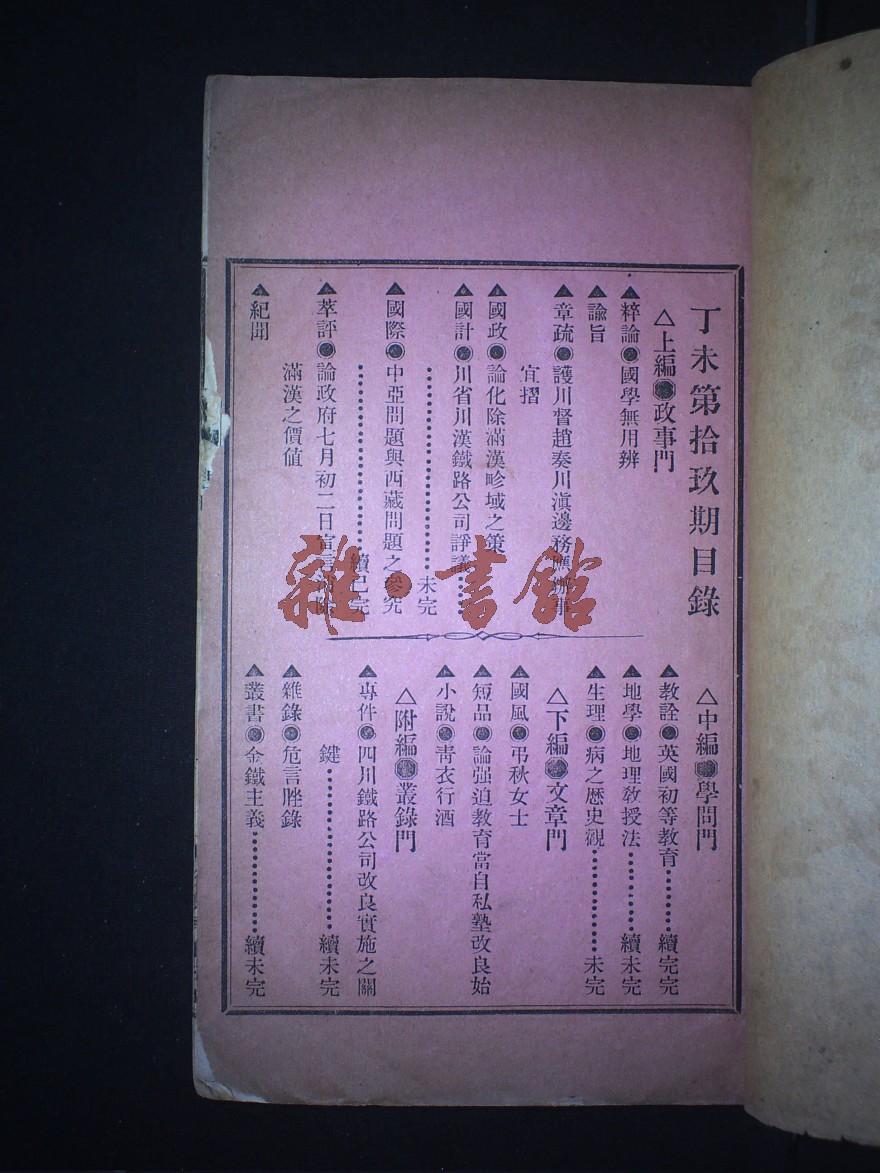 丁未第拾玖期目錄
△上編◉政事門
▲粹論◉國學無用辨
▲諭旨
▲章疏◉護川督趙奏川滇邊務應辦事
宜摺
▲國政◉論化除滿漢畛域之策
▲國計◉川省川漢鐵路公司諍議……
……未完
▲國際◉中亞問題與西藏問題之參究
……續已完
▲萃評◉論政府七月初二日宣言
滿漢之價值
▲紀聞
△中編◉學問門
▲教詮◉英國初等教育……續完完
▲地學◉地理教授法……續未完
▲生理◉病之歷史觀……未完
△下編◉文章門
▲國風◉弔秋女士
▲短品◉論强迫教育當自私塾改良始
▲小說◉靑衣行酒
△附編◉叢錄門
▲專件◉四川鐵路公司改良實施之關
鍵……續未完
▲雜錄◉危言脞錄
▲叢書◉金鐵主義……續未完
雜·書館